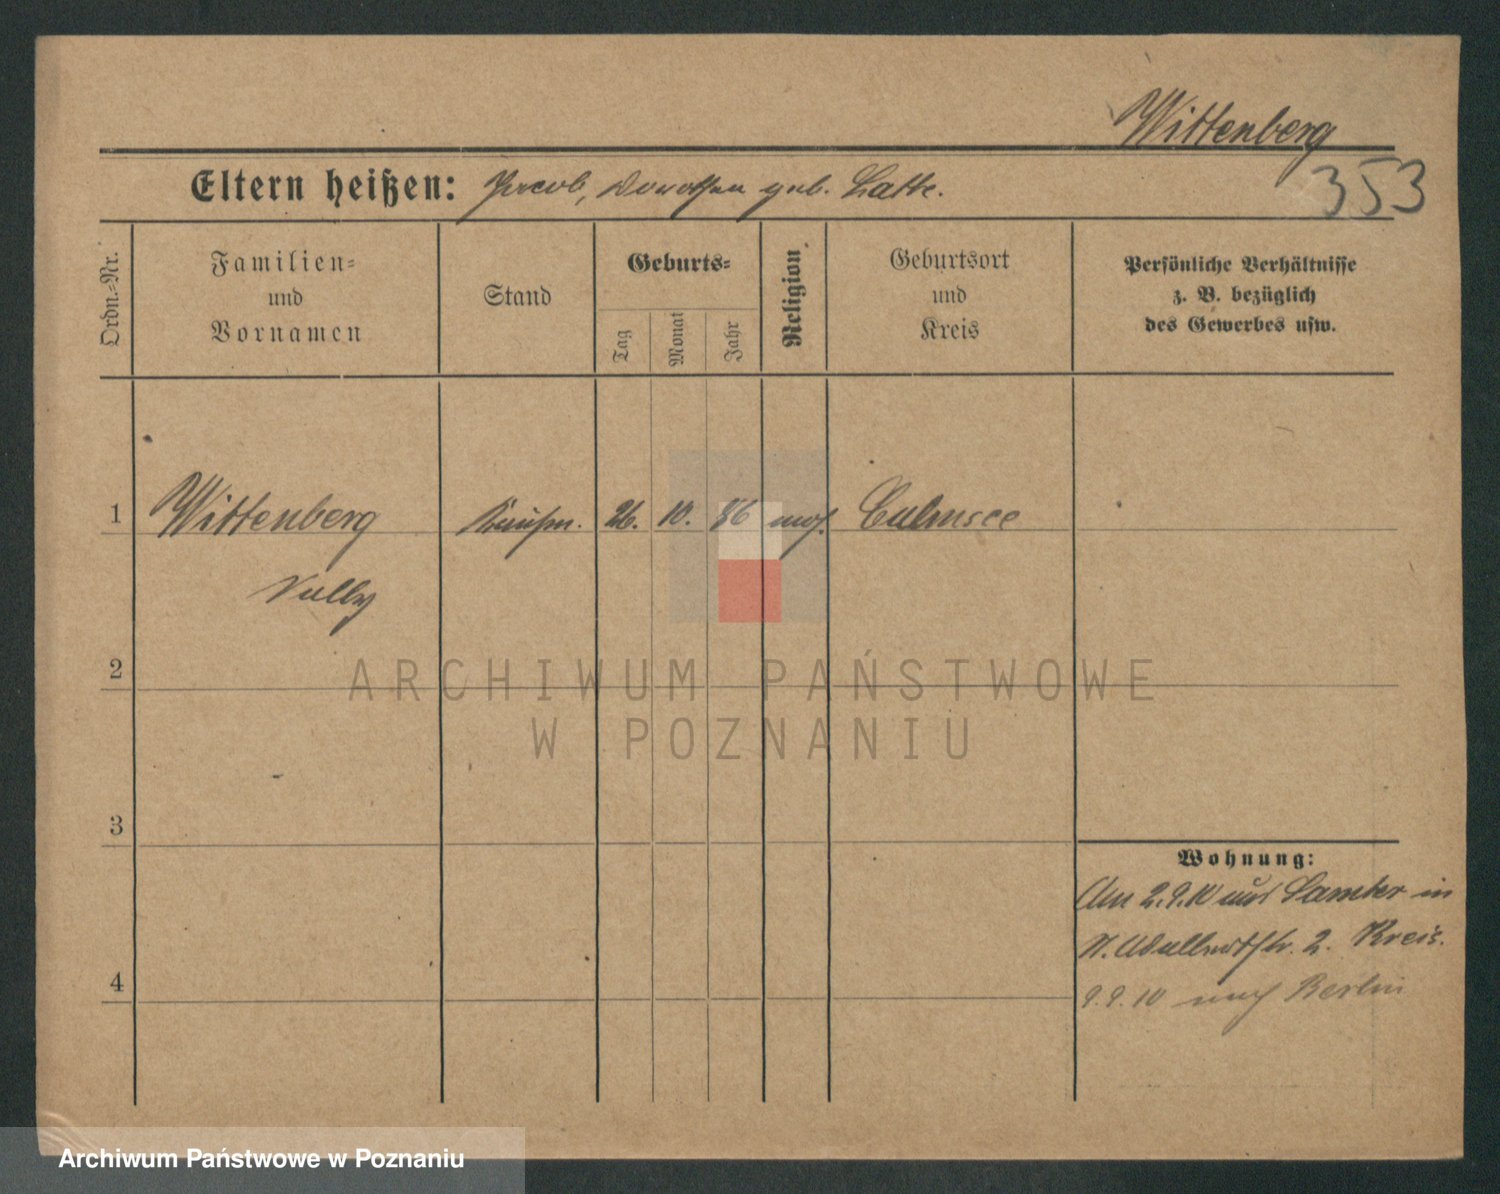 Wittenberg
353
Eltern heißen: Jacob, Dorothea geb. Latte.
Ordn.=Nr.
Familien=
und
Vornamen
Stand
Geburts=
Tag
Monat
Jahr
Religion
Geburtsort
und
Kreis
Persönliche Verhältnisse
z. B. bezüglich
des Gewerbes usw.
1 Wittenberg Kaufm. 26. 10. 86 mos. Culmsee
2
3
4
Wohnung:
Am 2.9.10 aus Samter in
2. Kreis.
9.9.10 nach Berlin
ARCHIWUM PAŃSTWOWE
W POZNANIU
Archiwum Państwowe w Poznaniu